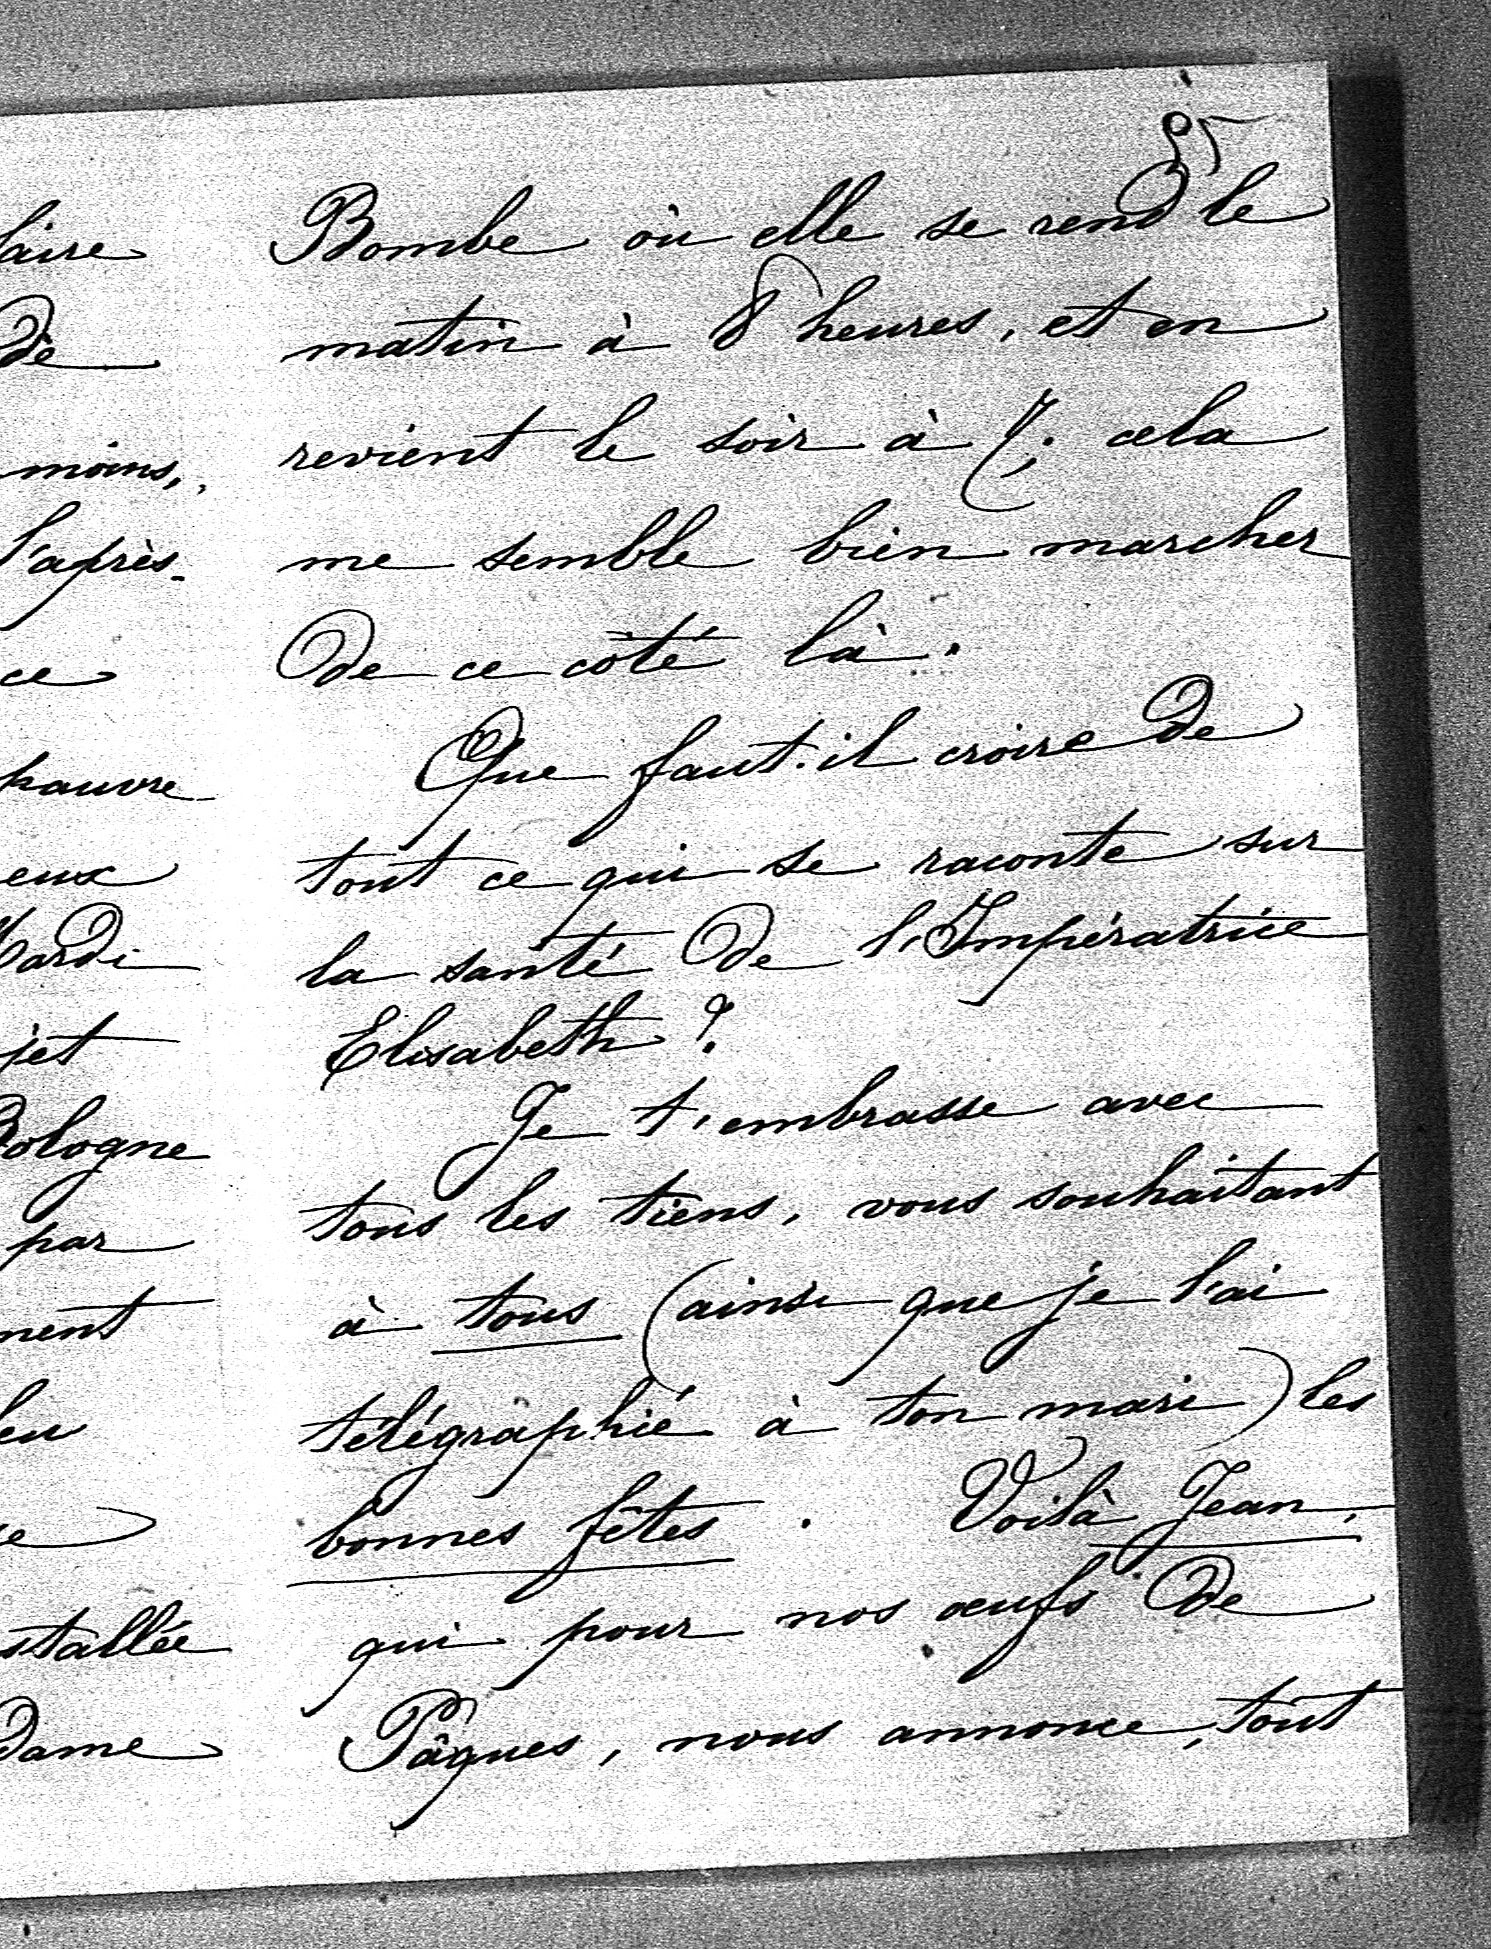 85
Bombe où elle se rend le
matin à 8 heures, et en
revient le soir à 7; cela
me semble bien marcher
de ce côté là.
Que faut-il croire de
tout ce qui se raconte sur
la santé de l'Impératrice
Elisabeth?
Je t'embrasse avec
tous les tiens, vous souhaitant
à tous (ainsi que je l'ai
télégraphié à ton mari) les
bonnes fêtes. Voilà Jean,
qui pour nos œufs de
Pâques, nous annonce, tout
aire
de
moins,
l'après-
ce
pauvre
eux
Mardi
jet
Bologne
par
ment
eu
stallée
dame